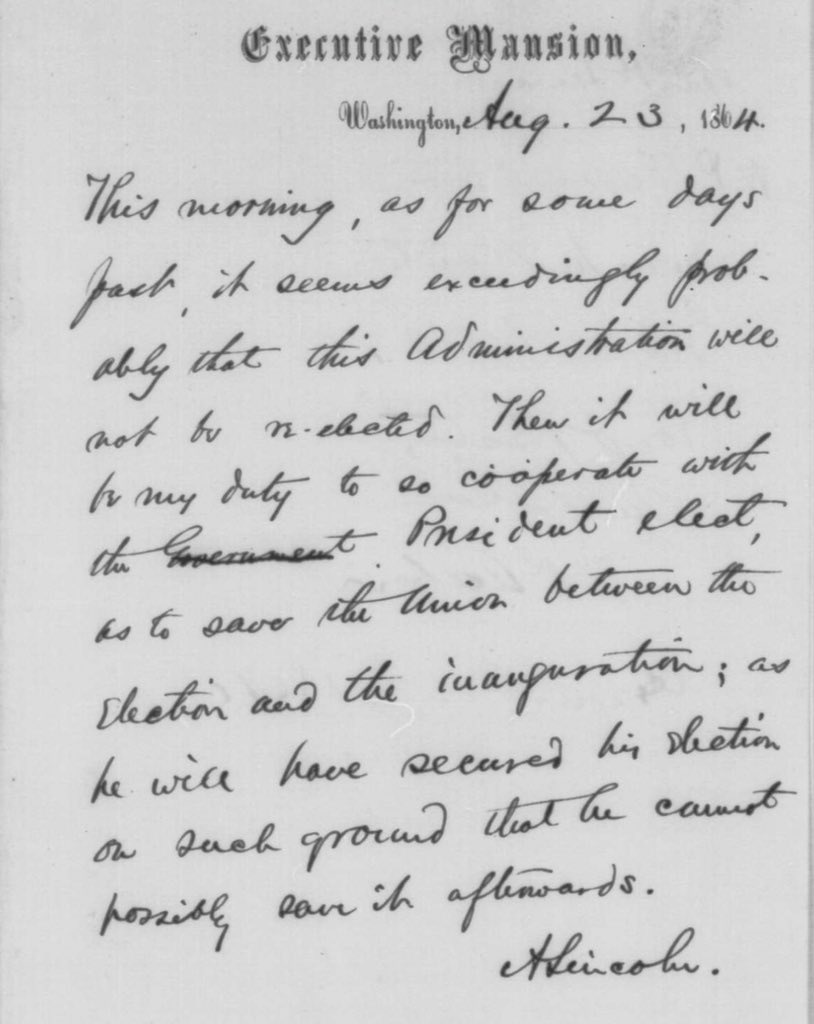 Executive Mansion,
Washington, Aug. 23, 1864.
This morning, as for some days
past, it seems exceedingly prob-
ably that this Administration will
not be re-elected. Then it will
be my duty to so co-operate with
the Government President elect,
as to save the Union between the
election and the inauguration; as
he will have secured his election
on such ground that he cannot
possibly save it afterwards.
A Lincoln.